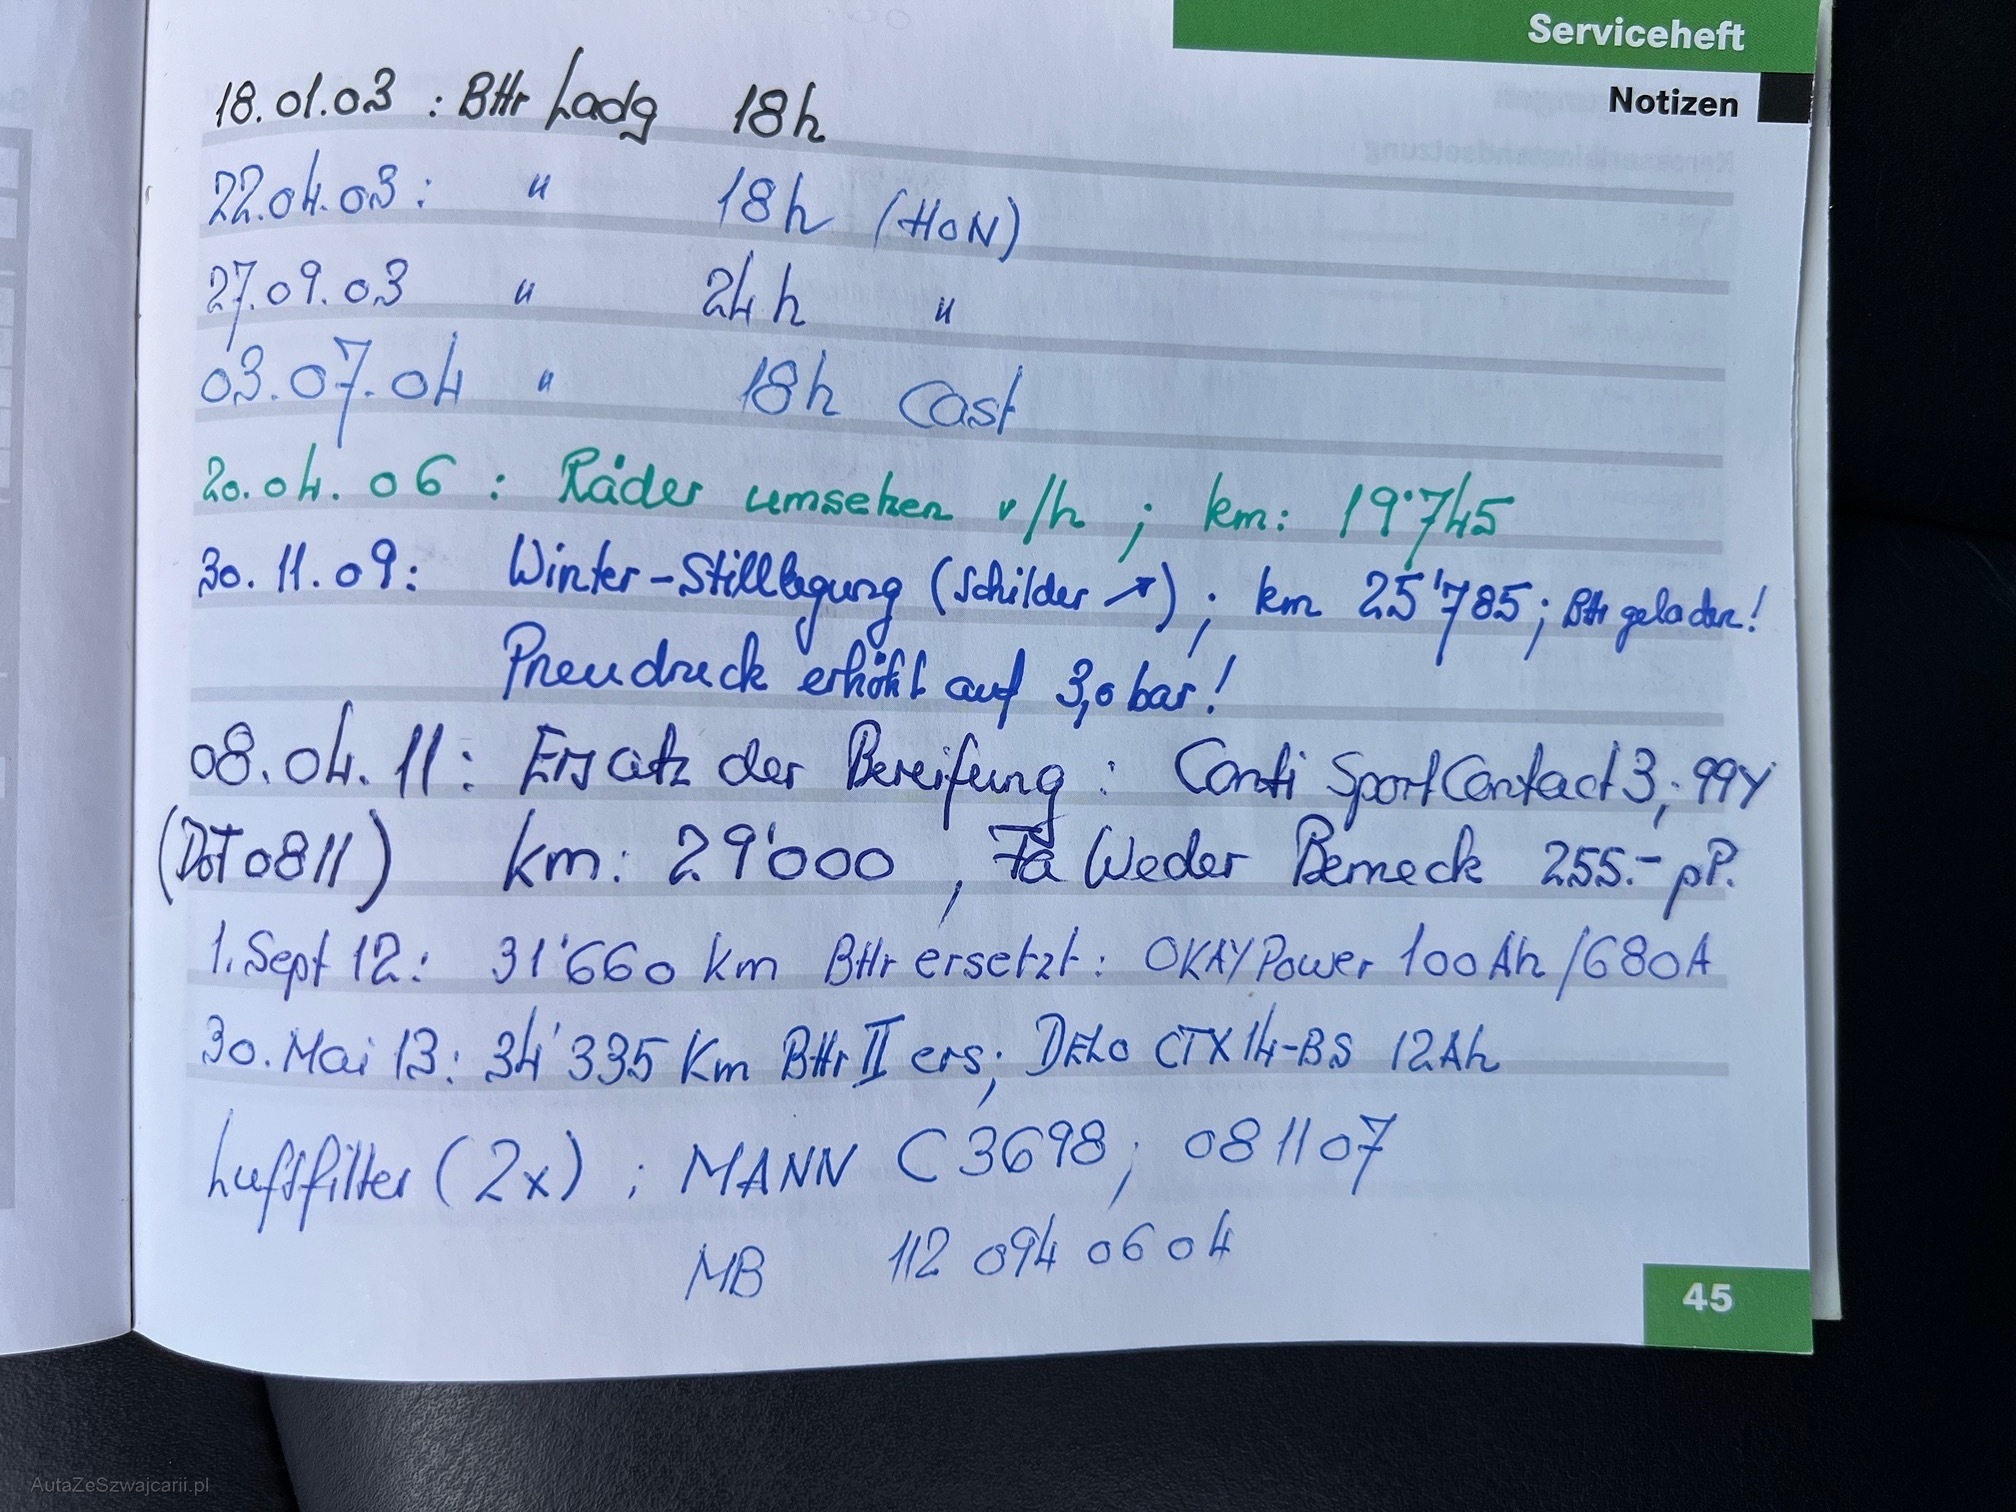 Serviceheft
Notizen
18.01.03 : BHr Ladg 18h
22.04.03 : " 18h (HON)
27.09.03 " 24h "
03.07.04 " 18h Cast
20.04.06 : Räder umsetzen v/h ; km: 19'745
30.11.09: Winter-Stilllegung (Schilder ↗) ; km 25'785 ; BHr geladen!
Pneudruck erhöht auf 3,0 bar!
08.04.11 : Ersatz der Bereifung : Conti SportContact 3, 99Y
(DOT 0811) km: 29'000 , Fa Weder Berneck 255.- pP.
1. Sept 12: 31'660 km BHr ersetzt: OKAY Power 100Ah/680A
30. Mai 13: 34'335 Km BHr II ers; DELO CTX14-BS 12Ah
Luftfilter (2x) ; MANN C 3698 ; 081107
MB 112 094 06 04
45
AutaZeSzwajcarii.pl